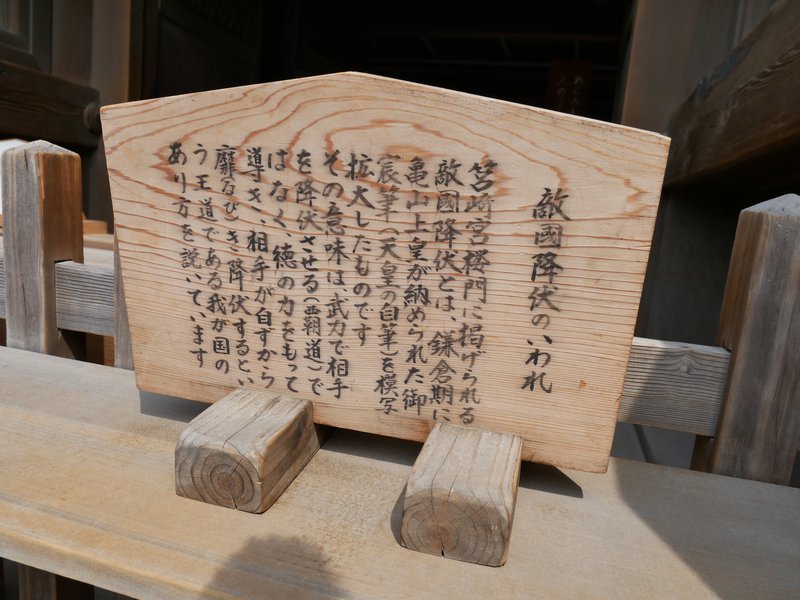 敵國降伏のいわれ
筥崎宮楼門に掲げられる
敵國降伏とは、鎌倉期に
亀山上皇が納められた御
宸筆(天皇の自筆)を模写
拡大したものです
その意味は武力で相手
を降伏させる(覇道)で
はなく、徳の力をもって
導き、相手が自ずから
靡(なび)き、降伏するとい
う王道である我が国の
あり方を説いています